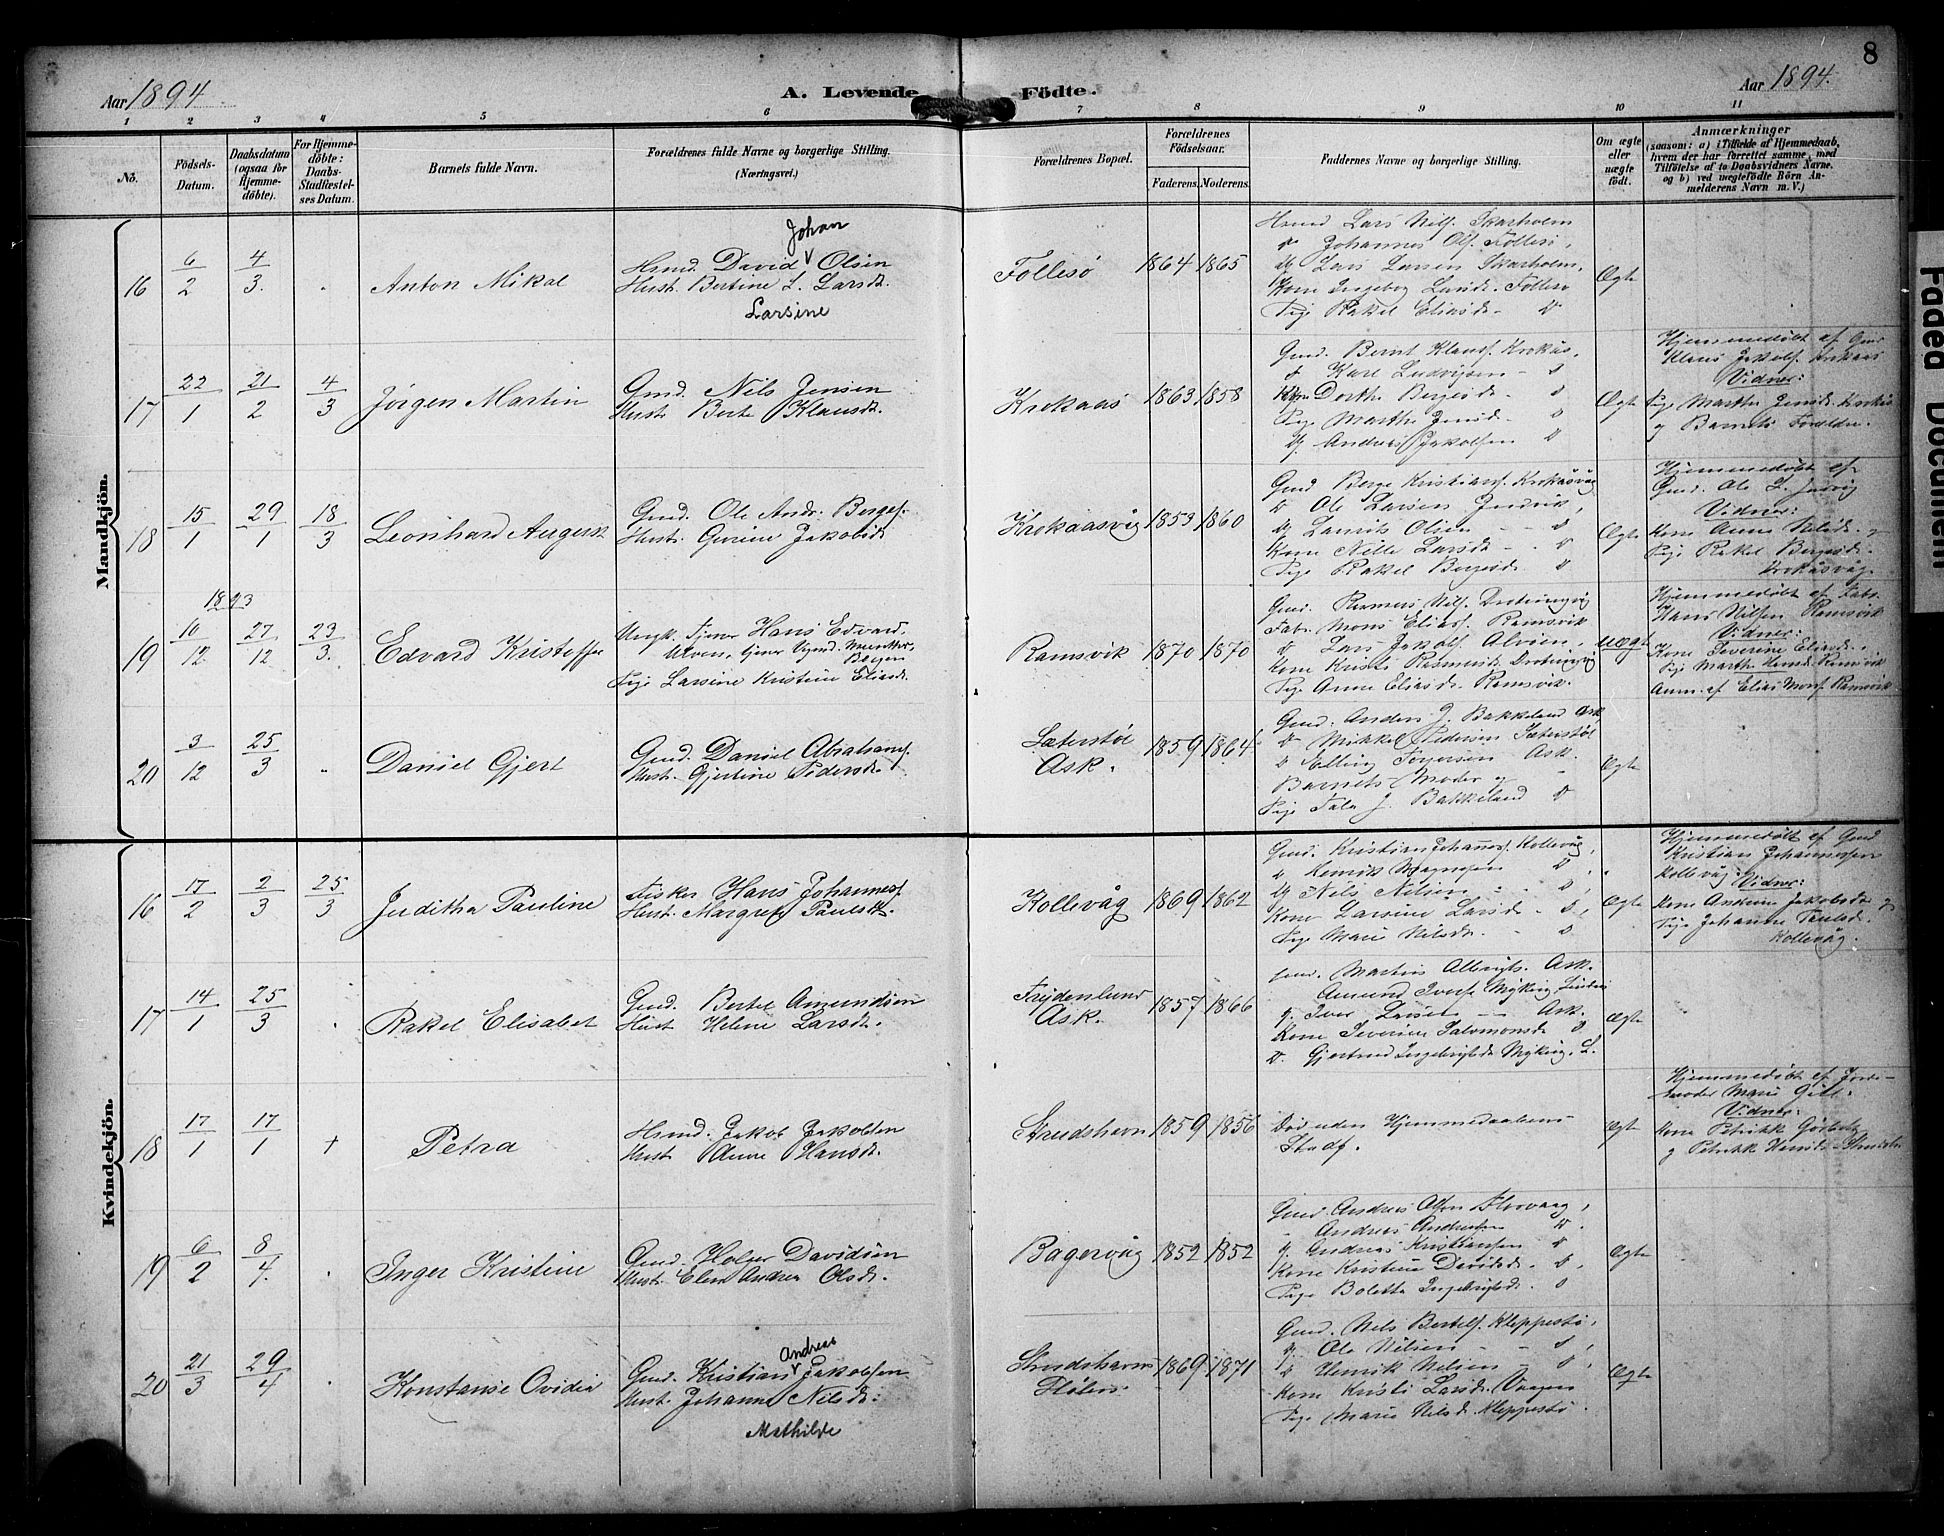 8
Aar 1894
A. Levende Födte.
Aar 1894.
1 2 3 4 5 6 7 8 9 10 11
No.
Födsels-
Datum.
Daabsdatum
(ogsaa for
Hjemme-
döbte).
For Hjemme-
döbte:
Daabs-
Stadfæstel-
ses Datum.
Barnets fulde Navn.
Forældrenes fulde Navne og borgerlige Stilling.
(Næringsvei.)
Forældrenes Bopæl.
Forældrenes
Födselsaar.
Faderens. Moderens.
Faddernes Navne og borgerlige Stilling.
Om ægte
eller
uægte
födt.
Anmærkninger
(saasom: a) i Tilfælde af Hjemmedaab,
hvem der har forrettet samme, med
Tilföielse af to Daabsvidners Navne.
og b) ved uægtefödte Börn An-
melderens Navn m. V.)
Mandkjön.
16
6/2
4/3.
Anton Mikal
Johan
Hsmd. David v Olsen
Hust. Bertine L. Larsdt.
Larsine
Follesö
1864 1865
Hsmd Lars Nilss. Skarholm
Johannes Ols. Follesö,
Lars Larsen Skarholm,
Kone Ingebog Larsdt. Follesö
Pige Rakel Eliasdt.
Ægte
17
22/1
21/2
4/3
Jörgen Martin
Gmd. Nils Jensen
Hust. Berte Klausdt.
Krokaas
1863 1858
Gmd. Bernt Klauss. Krokås,
Karl Ludvigsen
Kone Dorthe Bergesdt
Pige Marthe Jensdt.
Andreas Jakobsen
Ægte
Hjemmedöbt af Gmd
Klaus Jakobs. Krokaas
Vidner:
Pige Marthe Jensdt. Krokås
og Barnets Forældre.
18
15/1
29/1
18/3
Leonhard August
Gmd. Ole Andr. Berges.
Hust. Gurine Jakobsdt
Krokaasvåg
1853 1860
Gmd Berge Kristians. Krokåsvåg
Ole Larsen Indvik,
Laurits Olsen
Kone Nille Larsdt.
Pige Rakel Bergesdt.
Ægte
Hjemmedöbt af
Gmd. Ole L. Indvig
Vidner:
Kone Anna Nilsdt. og
Pige Rakel Bergesdt.
Krokåsvåg.
19
1893
10/12
27/12
23/3.
Edvard Kristoffer
Ungk. Tjener Hans Edvard.
Ulven, tjener Vognmd. Munther,
Bergen
Pige Larsine Kristine Eliasdt.
Ramsvik
1870 1870
Gmd. Rasmus Nils. Drotningvig
Fabr. Mons Elias. Ramsvik
Lars Jakobs. Alvöen.
Kone Kristi Rasmusdt Drotningvig
Pige Anne Eliasdt. Ramsvik.
uægte
Hjemmedöbt af Fabr.
Hans Nilsen Ramsvik
Vidner:
Kone Severine Eliasdt.
Pige Marthe Hansdt Ramsvik
Anm. af Elias Mons. Ramsvik
20
3/12
25/3
Daniel Gjert
Gmd. Daniel Abrahams.
Hust. Gjertine Pedersdt.
Sæterstöl
Ask.
1859 1864
Gmd. Anders J. Bakkeland Ask
Mikkel Pedersen Sæterstöl
Elling Torgersen Ask.
Barnets Moder og
Pige J. Bakkeland
Ægte
Kvindekjön.
16
17/2
2/3
25/3
Juditha Pauline
Fisker Hans Johanness.
Hust. Margrete Paulsdt.
Kollevåg
1869 1862
Gmd. Kristian Johannes. Kollevåg,
Henrik Magnesen
Nils Nilsen
Kone Larsine Larsdt.
Pige Marie Nilsdt.
Ægte
Hjemmedöbt af Gmd
Kristian Johannessen
Kollevåg. Vidner:
Kone Andrine Jakobsdt og
Pige Johanne Paulsdt.
Kollevåg.
17
14/1
25/3
Rakel Elisabet
Gmd. Bertel Amundsen
Hust Helene Larsdt.
Frydenlund
Ask.
1857 1866
Gmd. Martins Albrigts. Ask.
Amund Ivers. Myking
Iver Larsen Ask.
Kone Severine Salomonsdt
Gjertrud Ingebrigtsdt Myking. L.
Ægte
18
17/1
17/1
+
Petra
Hsmd. Jakob Jakobsen
Hust Anne Hansdt.
Strudshavn
1859 1856
Död uden Hjemmedaabens
Stadf.
Ægte
Hjemmedöbt af Jorde-
moder Marie
Vidner:
Kone Petrikke
og Petrikke
19
6/2
8/4.
Inger Kristine
Gmd. Holger Davidsen
Hust. Elen Andrea Olsdt.
Bagervåg
1852 1852
Gmd. Andreas Olsen Florvaag,
Andreas Andersen
Andreas Kristiansen
Kone Kristine Davidsdt.
Pige Boletta Ingebrigtsdt.
Ægte
20
21/3
29/4
Konstanse Ovidia
Andreas
Gmd. Kristian v Jakobsen
Hust. Johanne Nilsdt.
Mathilde
Strudshavns
1869 1871
Gmd. Nils Bertels. Kleppestö,
Ole Nilsen
Henrik Nilsen
Kone Kristi Larsdt. Vaagen
Pige Marie Nilsdt. Kleppestö.
Ægte
Faded Document